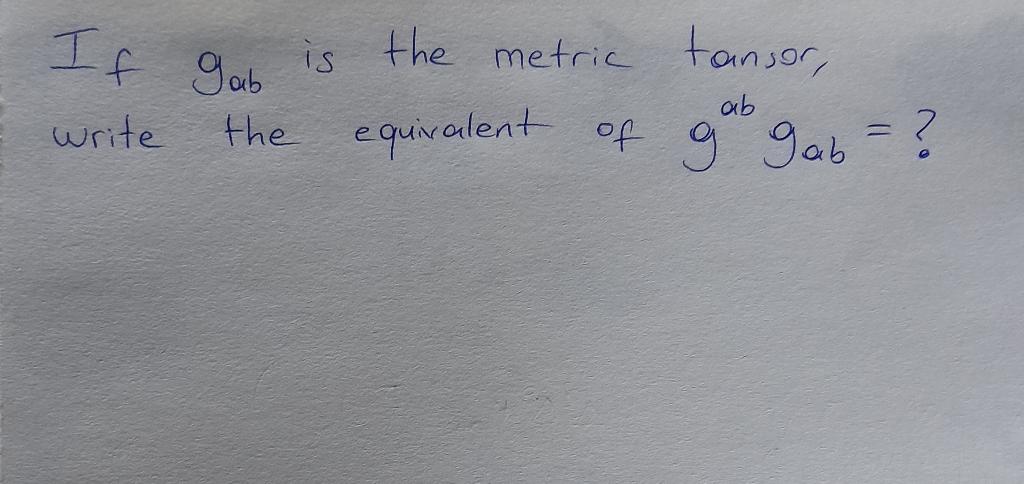 If g_ab is the metric tansor,
write the equivalent of g^ab g_ab = ?